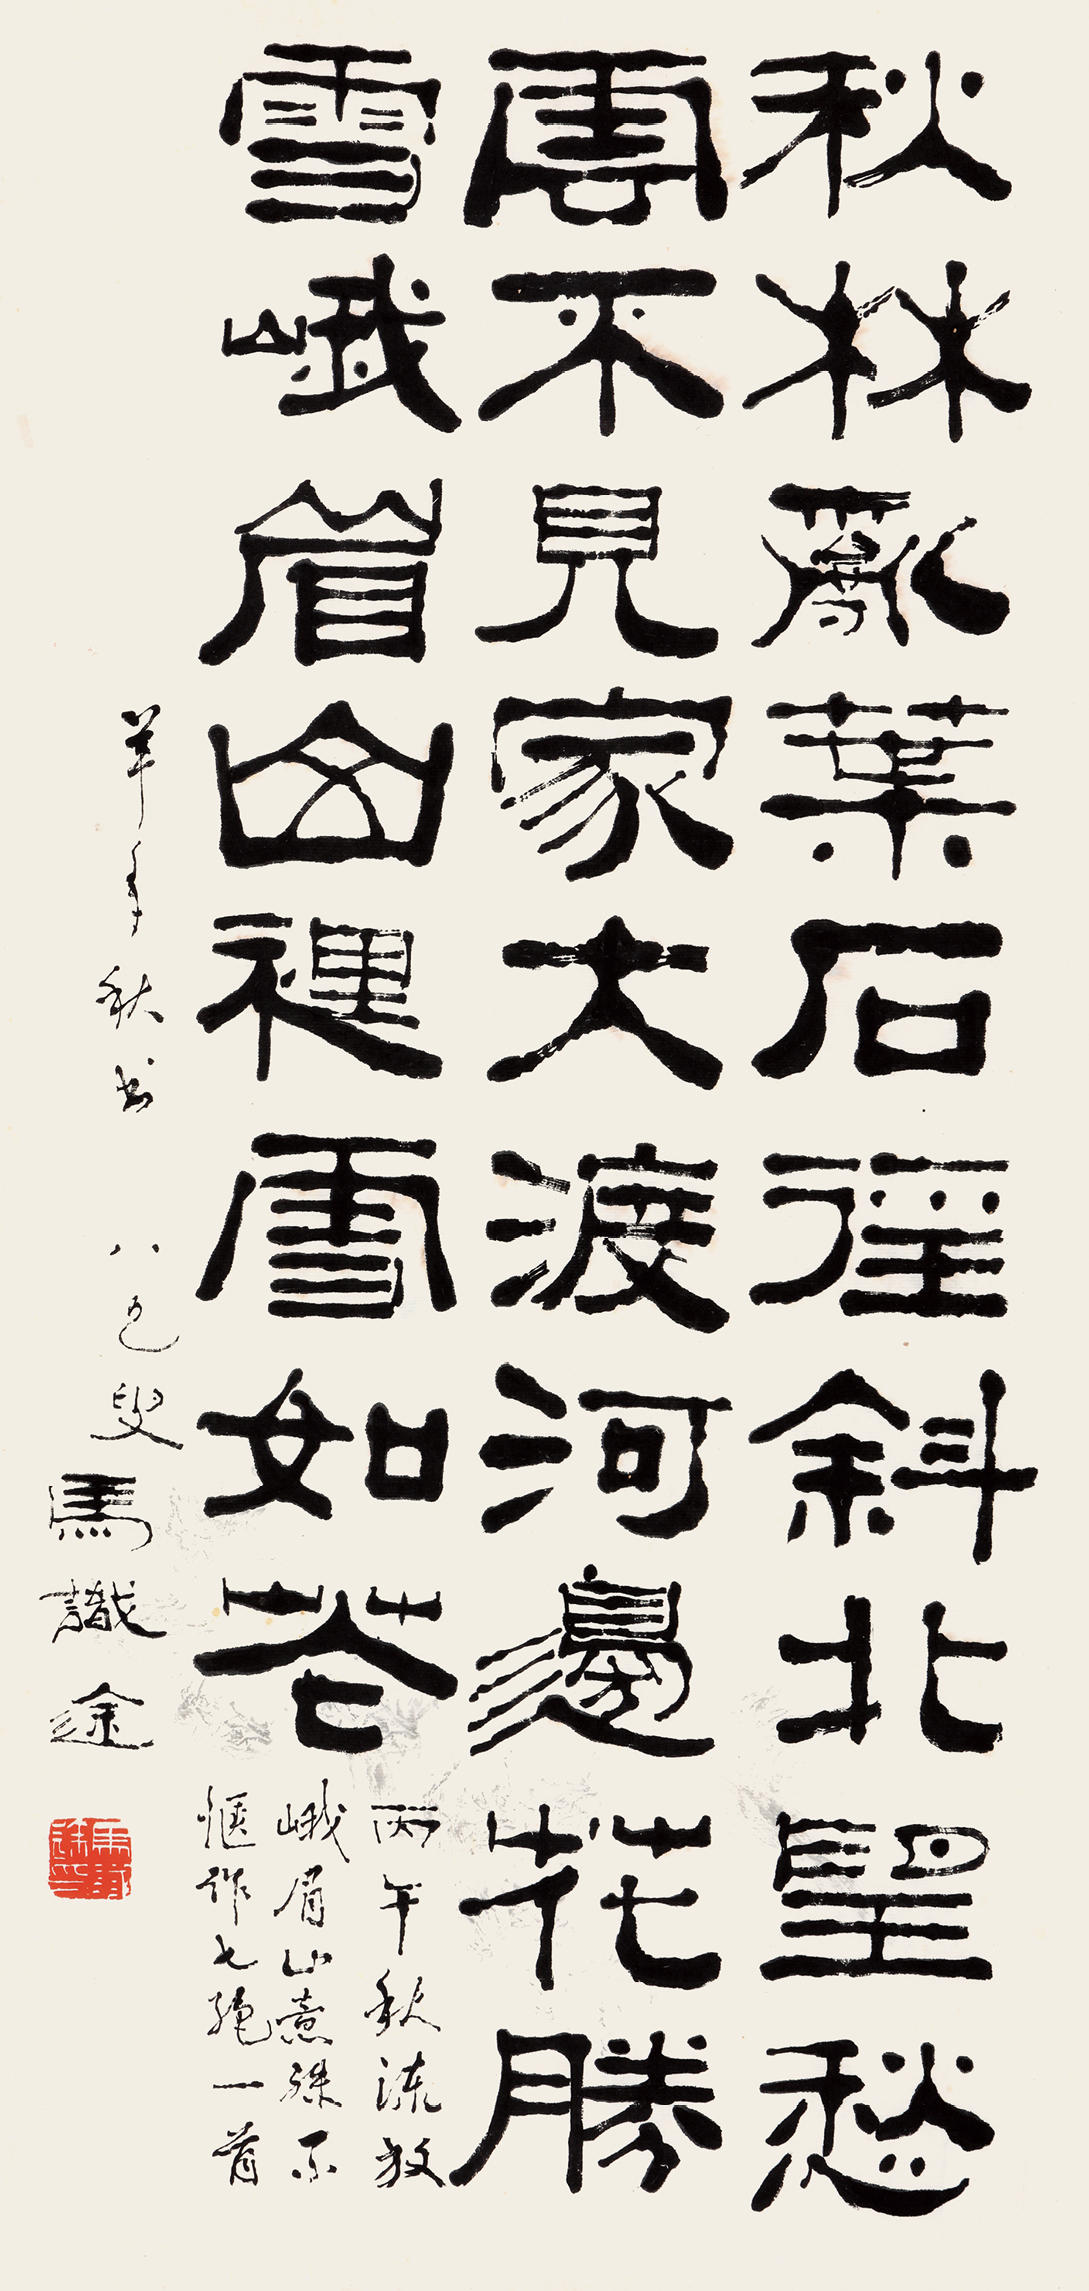 秋林亂葉石徑斜北望愁
雲不見家大渡河邊花勝
雪峨眉山裡雪如花
丙午秋流放
峨眉山意殊不
愜作七絕一首
羊年秋书 八九叟 馬識途